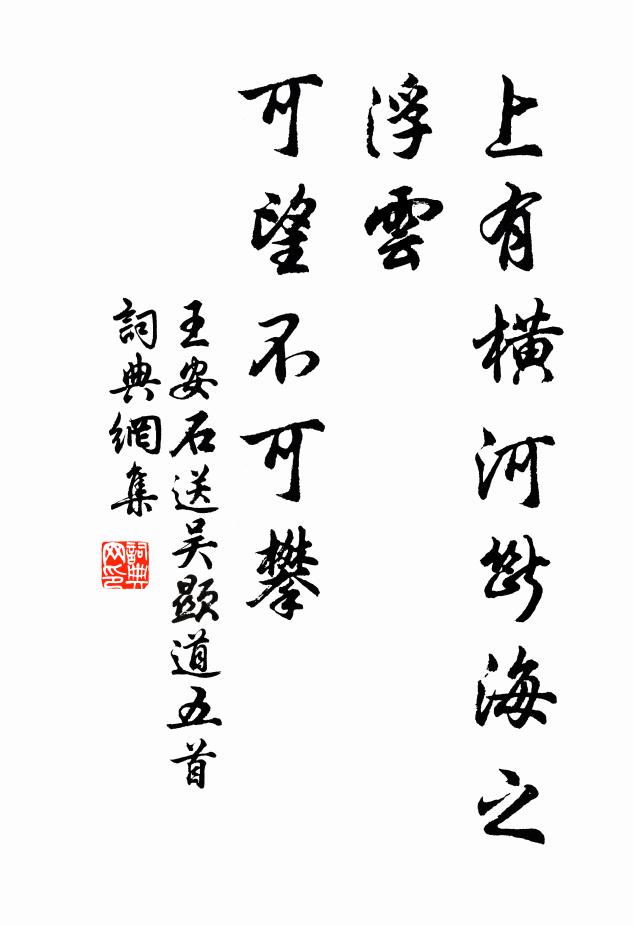 上有橫河斷海之
浮雲
可望不可攀
王安石送吴顯道五首
詞典網集
詞典网印